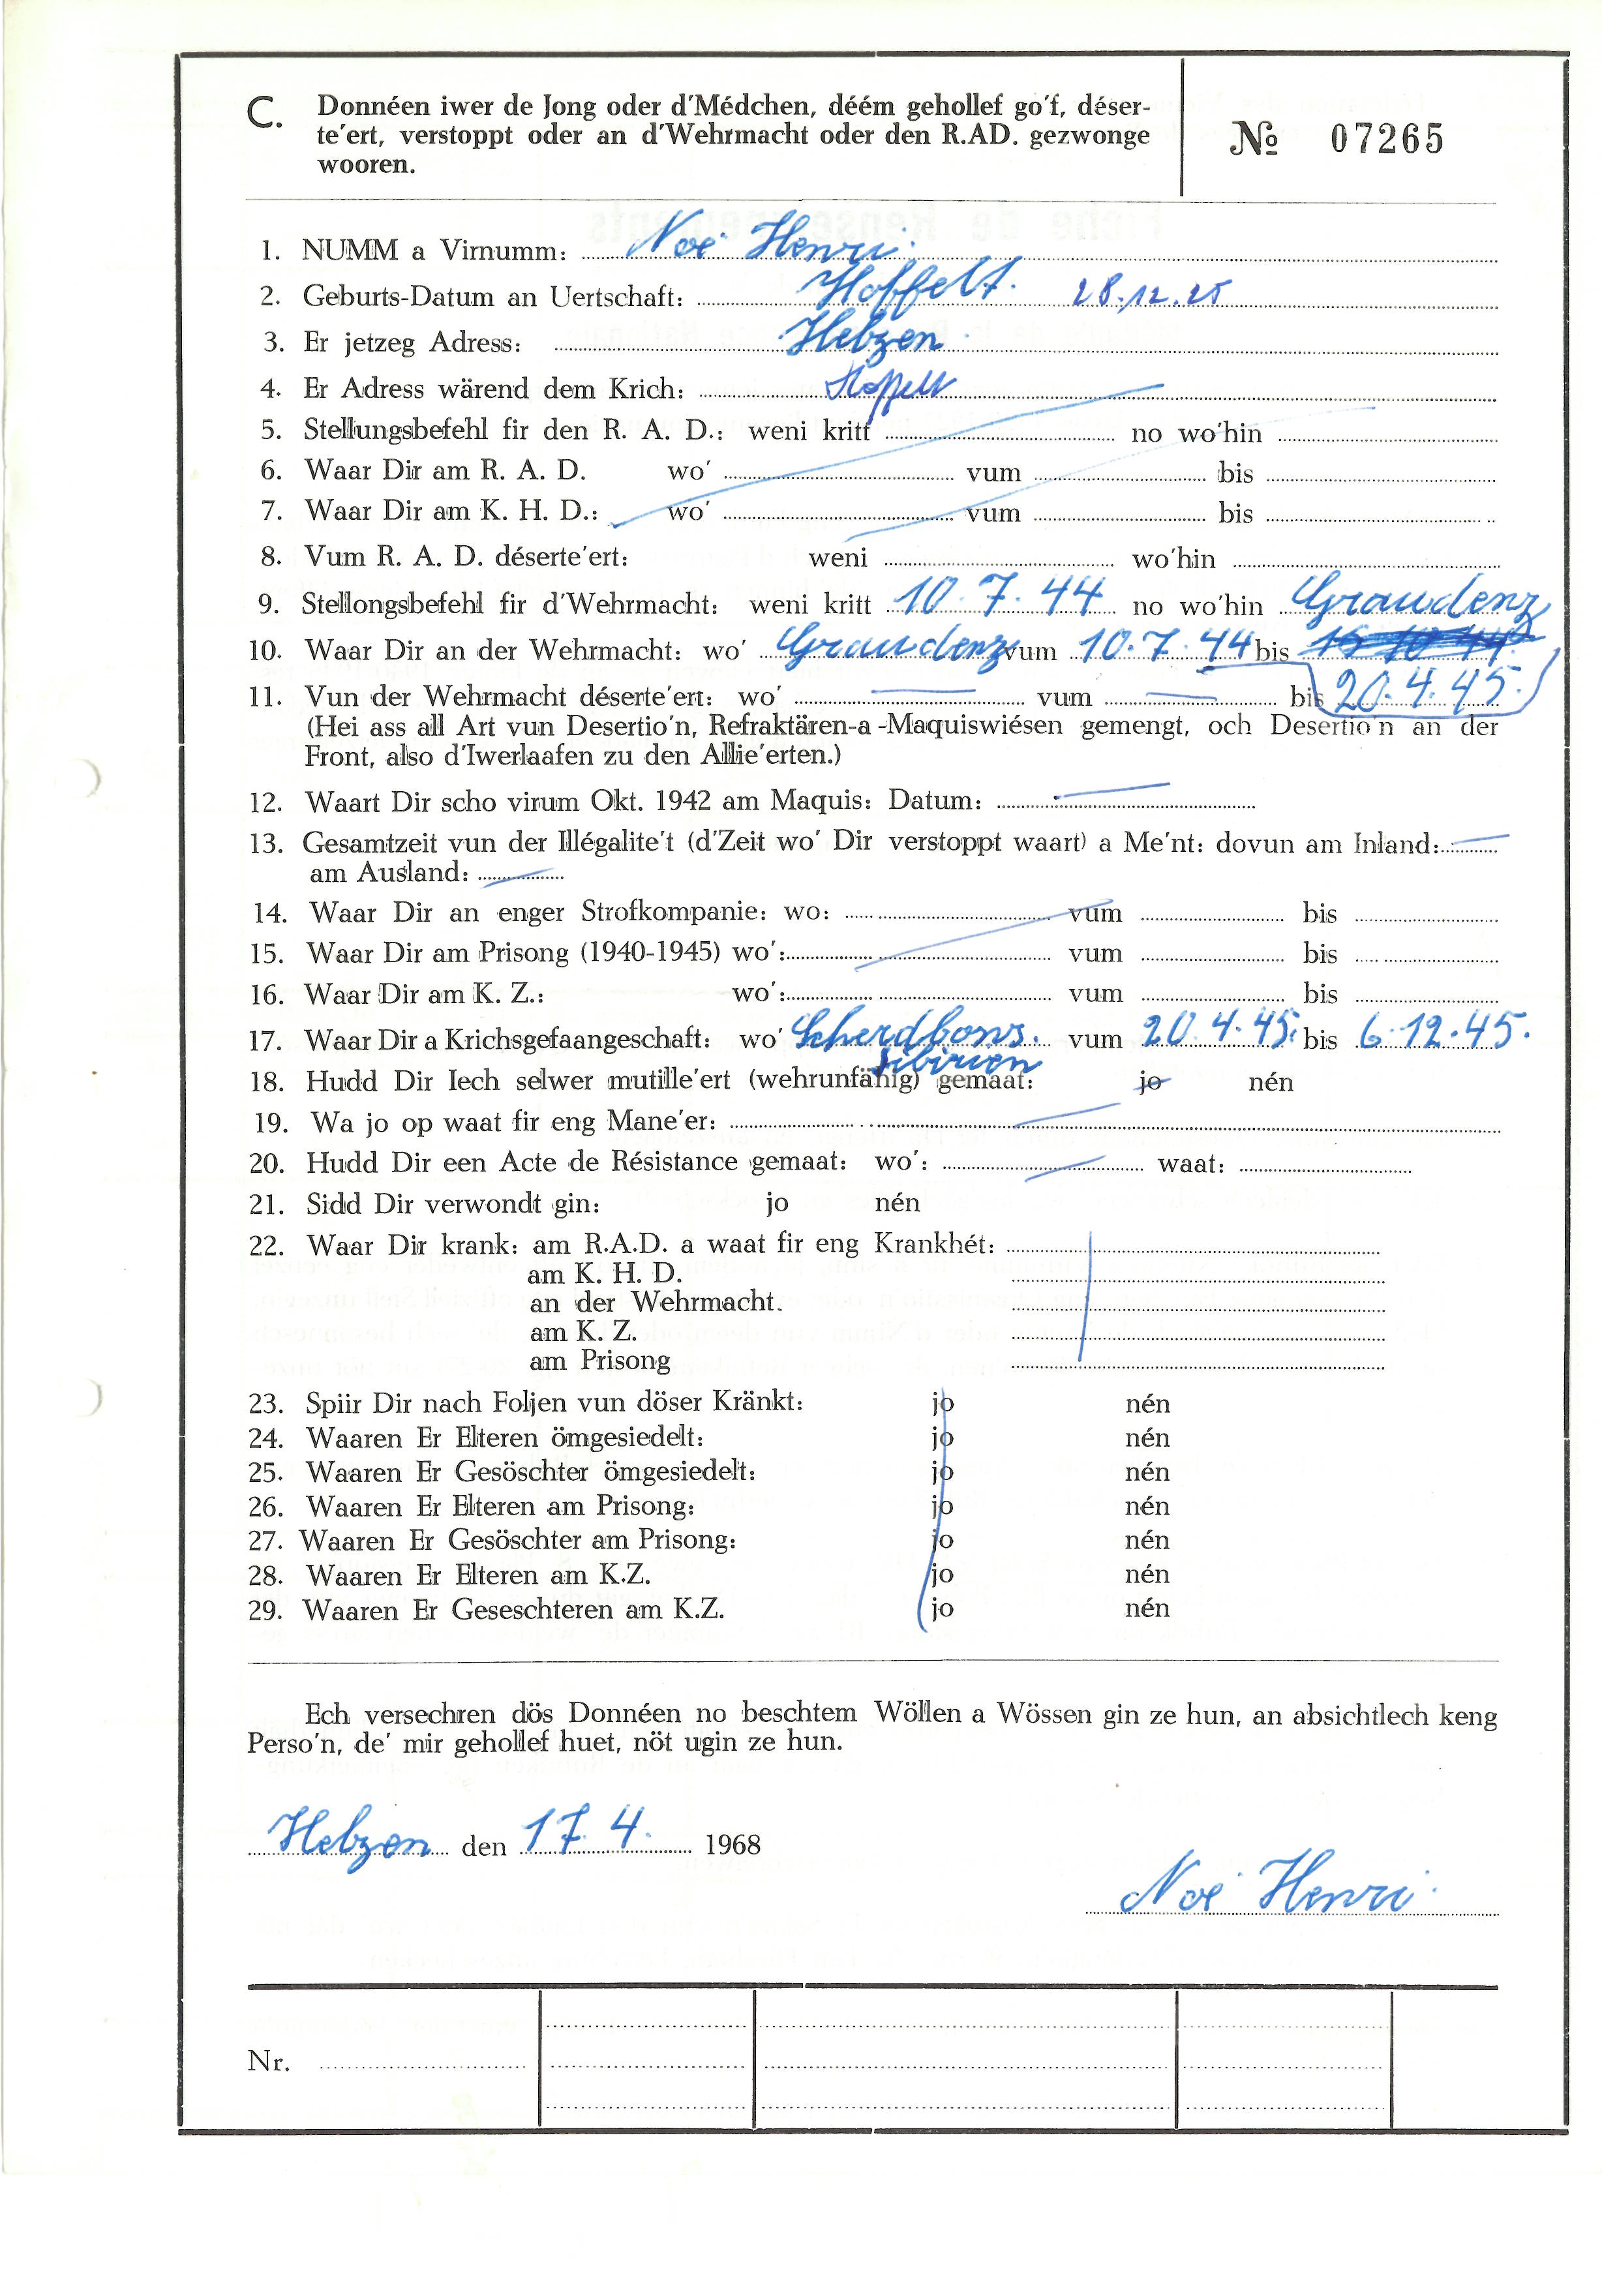 C. Donnéen iwer de Jong oder d'Médchen, déém gehollef go'f, déser-
te'ert, verstoppt oder an d'Wehrmacht oder den R.AD. gezwonge
wooren.
№ 07265
1. NUMM a Virnumm: Noé Henri.
2. Geburts-Datum an Uertschaft: Hoffelt. 28.12.25
3. Er jetzeg Adress: Helzen.
4. Er Adress wärend dem Krich: Hoffelt
5. Stellungsbefehl fir den R. A. D.: weni kritt no wo'hin
6. Waar Dir am R. A. D. wo' vum bis
7. Waar Dir am K. H. D.: wo' vum bis
8. Vum R. A. D. déserte'ert: weni wo'hin
9. Stellongsbefehl fir d'Wehrmacht: weni kritt 10.7.44 no wo'hin Graudenz
10. Waar Dir an der Wehrmacht: wo' Graudenz vum 10.7.44 bis
11. Vun der Wehrmacht déserte'ert: wo' vum bis 20.4.45.
(Hei ass all Art vun Desertio'n, Refraktären-a-Maquiswiésen gemengt, och Desertio'n an der
Front, also d'Iwerlaafen zu den Allie'erten.)
12. Waart Dir scho virum Okt. 1942 am Maquis: Datum:
13. Gesamtzeit vun der Illégalite't (d'Zeit wo' Dir verstoppt waart) a Me'nt: dovun am Inland:
am Ausland:
14. Waar Dir an enger Strofkompanie: wo: vum bis
15. Waar Dir am Prisong (1940-1945) wo': vum bis
16. Waar Dir am K. Z.: wo': vum bis
17. Waar Dir a Krichsgefaangeschaft: wo' vum 20.4.45. bis 6.12.45.
sibirien
18. Hudd Dir Iech selwer mutille'ert (wehrunfähig) gemaat: jo nén
19. Wa jo op waat fir eng Mane'er:
20. Hudd Dir een Acte de Résistance gemaat: wo': waat:
21. Sidd Dir verwondt gin: jo nén
22. Waar Dir krank: am R.A.D. a waat fir eng Krankhét:
am K. H. D.
an der Wehrmacht.
am K. Z.
am Prisong
23. Spiir Dir nach Foljen vun döser Kränkt: jo nén
24. Waaren Er Elteren ömgesiedelt: jo nén
25. Waaren Er Gesöschter ömgesiedelt: jo nén
26. Waaren Er Elteren am Prisong: jo nén
27. Waaren Er Gesöschter am Prisong: jo nén
28. Waaren Er Elteren am K.Z. jo nén
29. Waaren Er Geseschteren am K.Z. jo nén
Ech versechren dös Donnéen no beschtem Wöllen a Wössen gin ze hun, an absichtlech keng
Perso'n, de' mir gehollef huet, nöt ugin ze hun.
Helzen den 17.4. 1968
Noé Henri.
Nr.